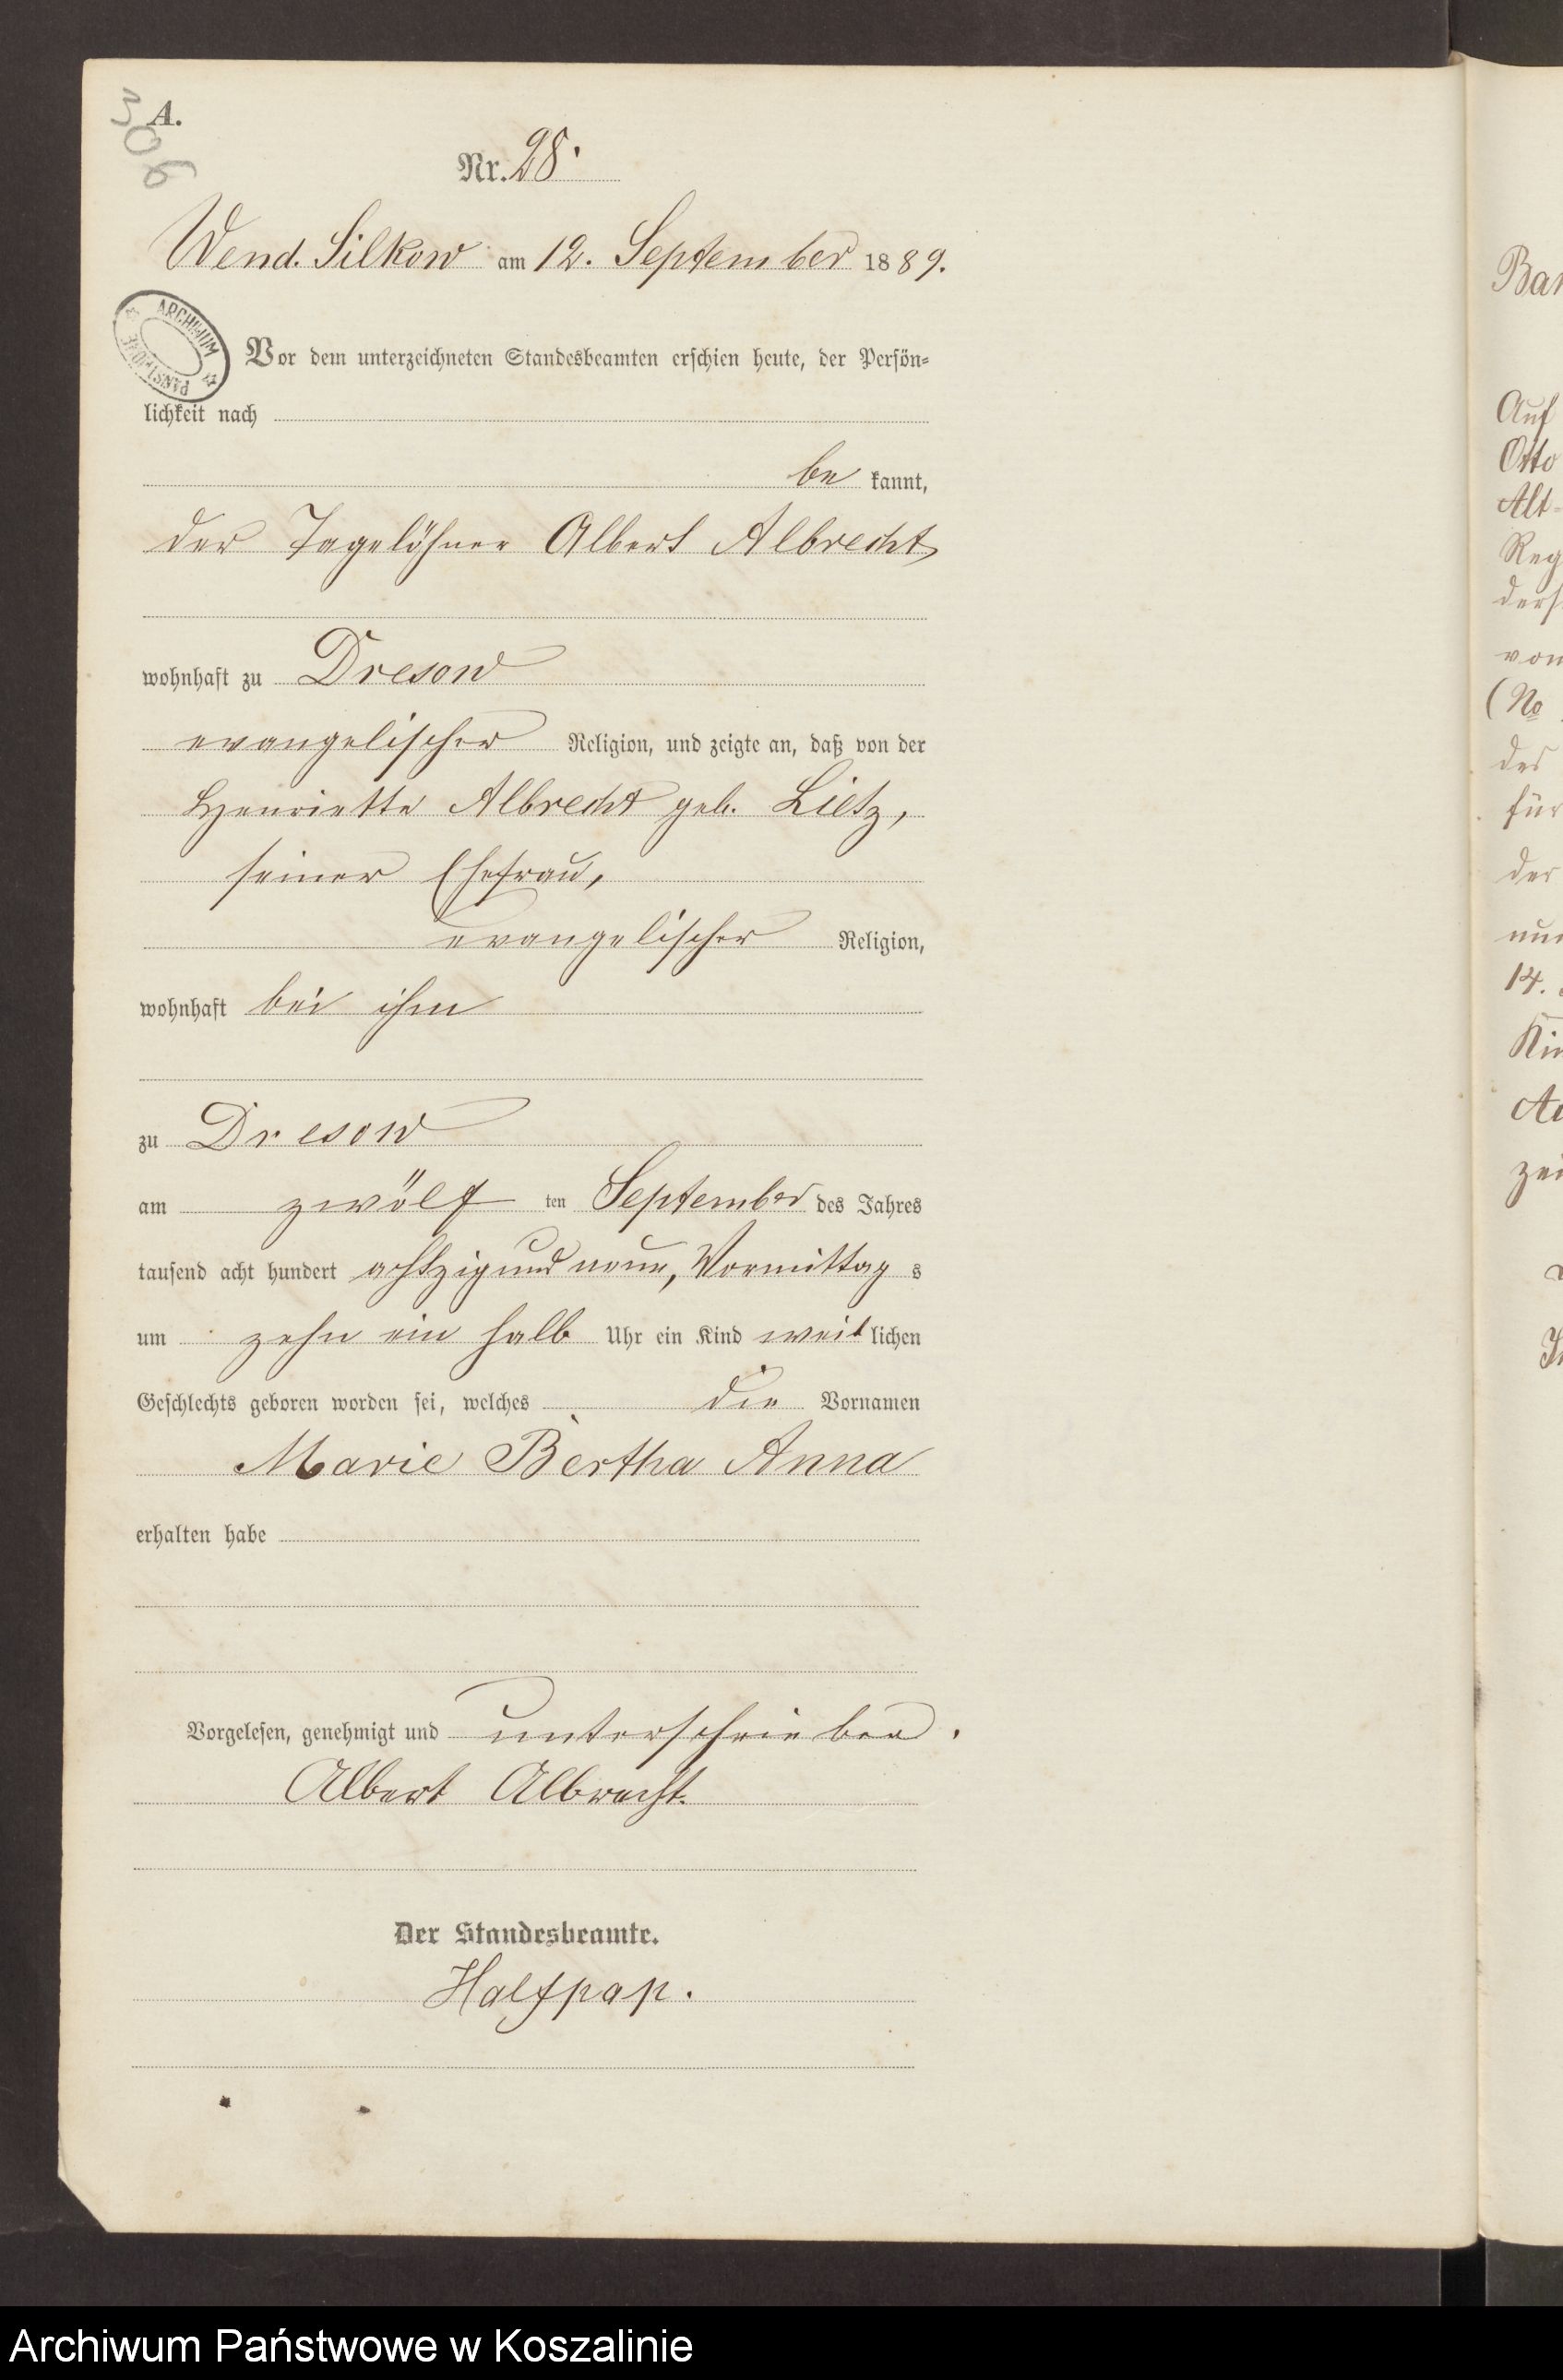 306
A.
Nr. 28.
Wend. Silkow am 12. September 1889.
ARCHIWUM PAŃSTWOWE
Vor dem unterzeichneten Standesbeamten erschien heute, der Persön-
lichkeit nach
be kannt,
der Tagelöhner Albert Albrecht,
wohnhaft zu Dresow
evangelischer Religion, und zeigte an, daß von der
Henriette Albrecht geb. Lietz,
seiner Ehefrau,
evangelischer Religion,
wohnhaft bei ihm
zu Dresow
am zwölf ten September des Jahres
tausend acht hundert achtzig und neun, Vormittag s
um zehn ein halb Uhr ein Kind weib lichen
Geschlechts geboren worden sei, welches die Vornamen
Marie Bertha Anna
erhalten habe
Vorgelesen, genehmigt und unterschrieben.
Albert Albrecht.
Der Standesbeamte.
Halfpap.
Auf
Otto
Alt-
von
(No
des
für
der
14.
Archiwum Państwowe w Koszalinie